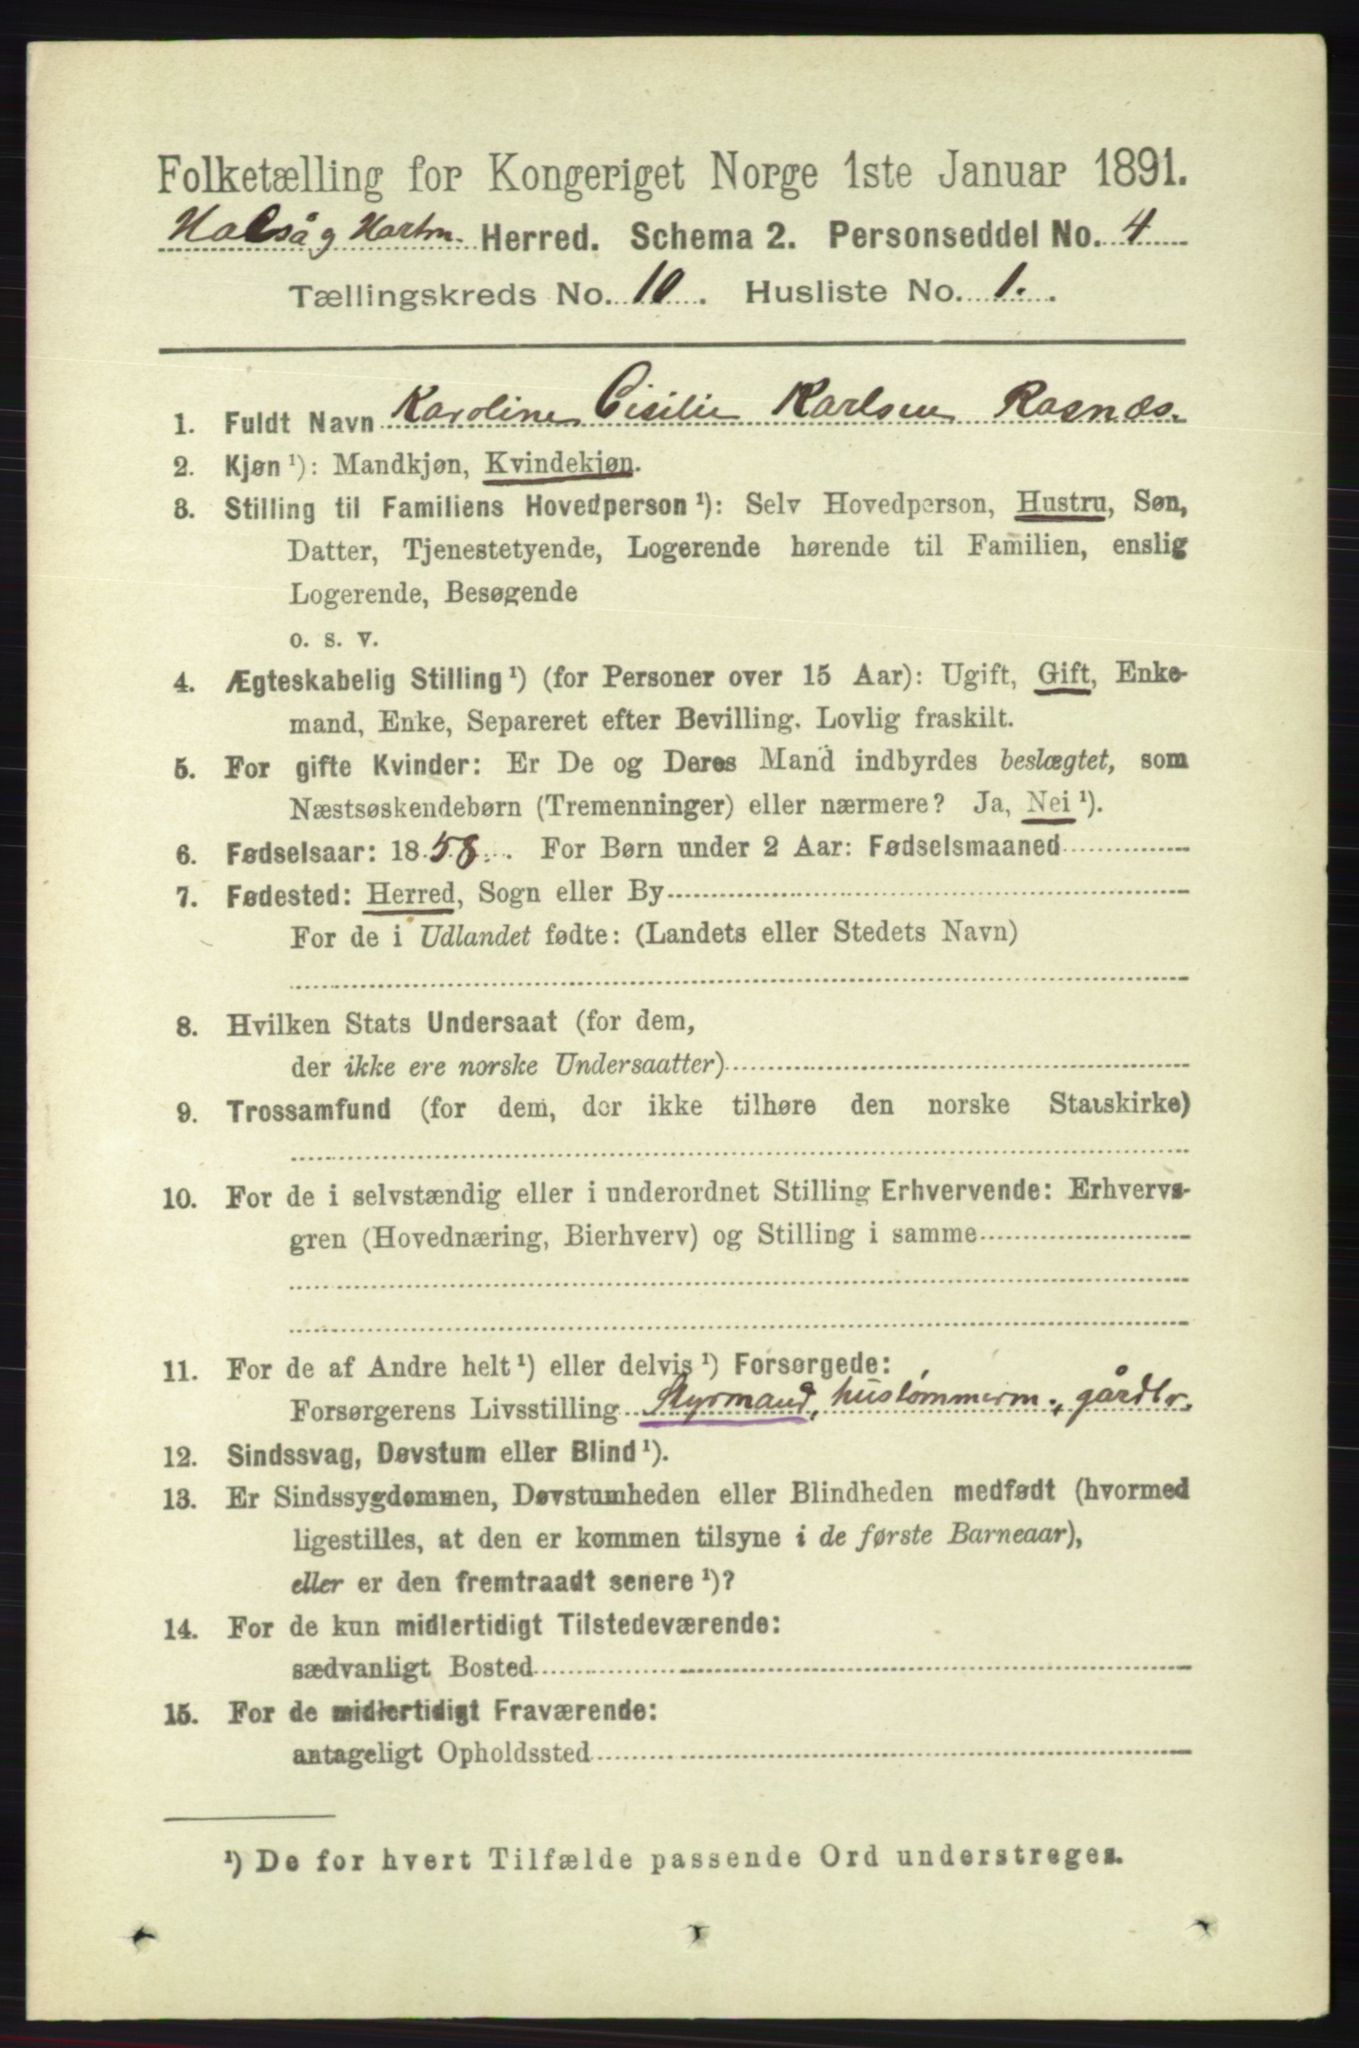 Folketælling for Kongeriget Norge 1ste Januar 1891.
Halså g Hartm. Herred. Schema 2. Personseddel No. 4
Tællingskreds No. 10. Husliste No. 1.
1. Fuldt Navn Karoline Cisilie Karlsen Rosnæs.
2. Kjøn ¹): Mandkjøn, Kvindekjøn.
3. Stilling til Familiens Hovedperson ¹): Selv Hovedperson, Hustru, Søn,
Datter, Tjenestetyende, Logerende hørende til Familien, enslig
Logerende, Besøgende
o. s. v.
4. Ægteskabelig Stilling ¹) (for Personer over 15 Aar): Ugift, Gift, Enke-
mand, Enke, Separeret efter Bevilling. Lovlig fraskilt.
5. For gifte Kvinder: Er De og Deres Mand indbyrdes beslægtet, som
Næstsøskendebørn (Tremenninger) eller nærmere? Ja, Nei ¹).
6. Fødselsaar: 1858. For Børn under 2 Aar: Fødselsmaaned
7. Fødested: Herred, Sogn eller By
For de i Udlandet fødte: (Landets eller Stedets Navn)
8. Hvilken Stats Undersaat (for dem,
der ikke ere norske Undersaatter)
9. Trossamfund (for dem, der ikke tilhøre den norske Statskirke)
10. For de i selvstændig eller i underordnet Stilling Erhvervende: Erhvervs-
gren (Hovednæring, Bierhverv) og Stilling i samme
11. For de af Andre helt ¹) eller delvis ¹) Forsørgede:
Forsørgerens Livsstilling Styrmand, hustømmerm., gårdbr.
12. Sindssvag, Døvstum eller Blind ¹).
13. Er Sindssygdommen, Døvstumheden eller Blindheden medfødt (hvormed
ligestilles, at den er kommen tilsyne i de første Barneaar),
eller er den fremtraadt senere ¹)?
14. For de kun midlertidigt Tilstedeværende:
sædvanligt Bosted
15. For de midlertidigt Fraværende:
antageligt Opholdssted
¹) De for hvert Tilfælde passende Ord understreges.